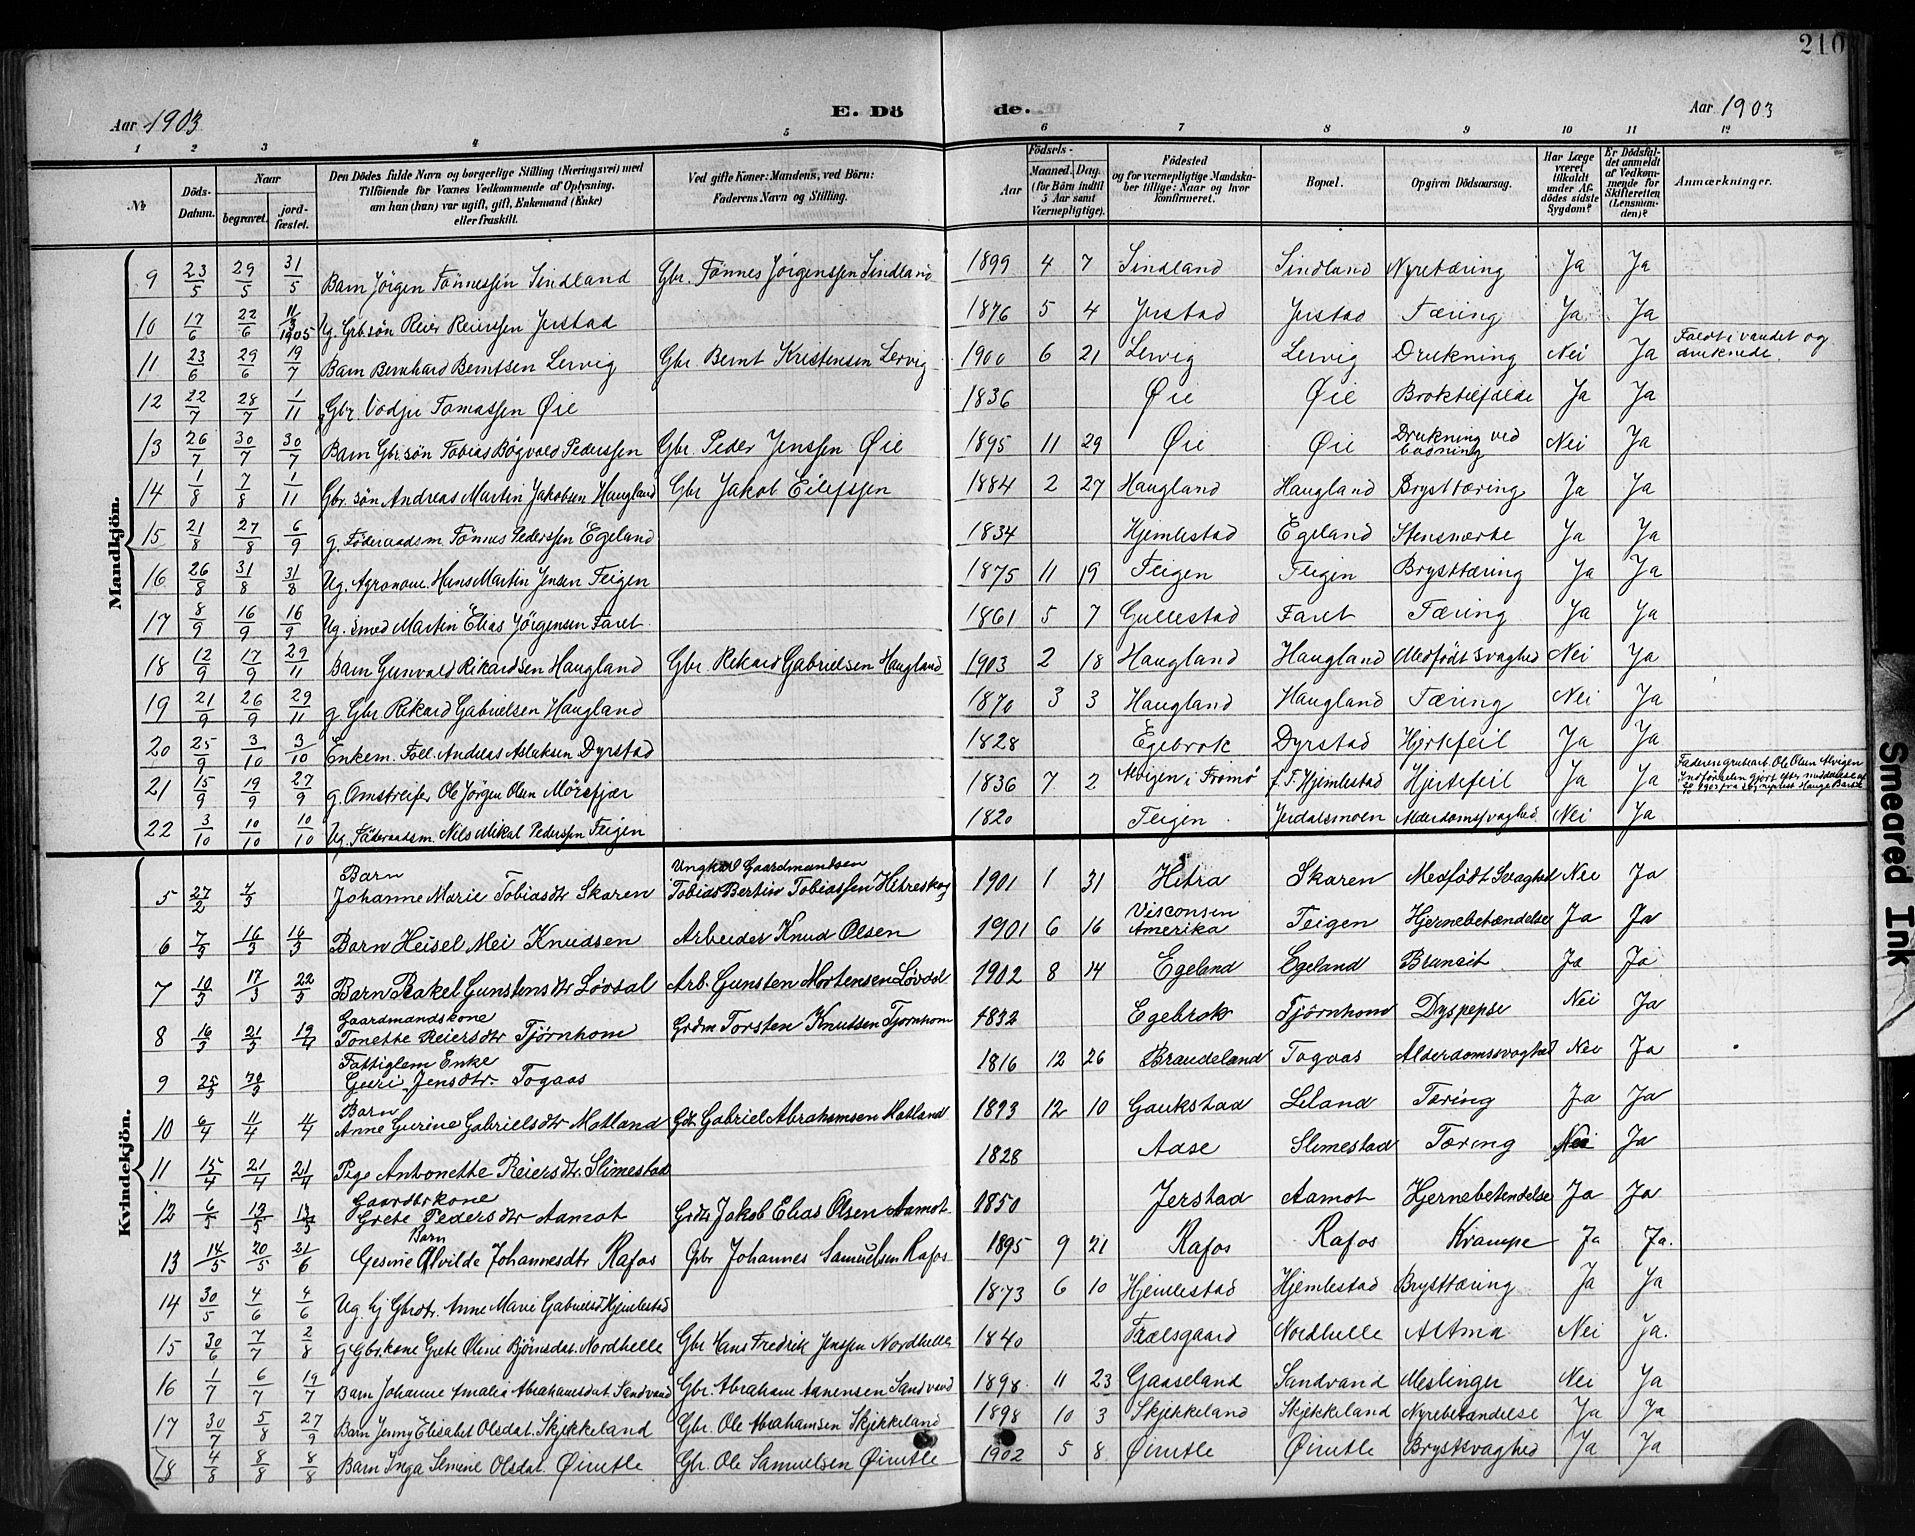 210
Aar 1903 E. Dö de. Aar 1903
1 2 3 4 5 6 7 8 9 10 11 12
№ Döds-Datum. Naar begravet. jord-fæstet. Den Dödes fulde Navn og borgerlige Stilling (Næringsvei) med Tilföiende för Voxnes Vedkommende af Oplysning, om han (hun) var ugift, gift, Enkemand (Enke) eller fraskilt. Ved gifte Koner: Mandens, ved Börn: Faderens Navn og Stilling. Aar Födsels- Maaned. Dag. (for Börn indtil 5 Aar samt Værnepligtige). Födested og for værnepligtige Mandskaber tillige: Naar og hvor konfirmeret. Bopæl. Opgiven Dödsaarsag. Har Læge været tilkaldt under Afdödes sidste Sygdom? Er Dödsfaldet anmeldt af Vedkommende for Skifteretten (Lensmanden)? Anmærkninger.
Mandkjön.
9 23/5 29/5 31/5 Barn Jörgen Tönnessen Sindland Gbr. Tönnes Jörgenssen Sindland 1899 4 7 Sindland Sindland Nyretæring Ja Ja
10 17/6 22/6 11/3 1905 Ug. Gbrsön Reier Reierssen Jerstad 1876 5 4 Jerstad Jerstad Tæring Ja Ja
11 23/6 29/6 19/7 Barn Bernhard Berntsen Lervig Gbr. Bernt Kristensen Lervig 1900 6 21 Lervig Lervig Drukning Nei Ja Faldt i vandet og druknede.
12 22/7 28/7 1/11 Gbr Vodje Tomassen Øie 1836 Øie Øie Broktilfælde Ja Ja
13 26/7 30/7 30/7 Barn Gbrsön Tobias Bögvald Pederssen Gbr. Peder Jenssen Øie 1895 11 29 Øie Øie Drukning ved badning Nei Ja
14 1/8 7/8 1/11 Gbr. sön Andreas Martin Jakobsen Haugland Gbr Jakob Eilefssen 1884 2 27 Haugland Haugland Brysttæring Ja Ja
15 21/8 27/8 6/9 g. Föderaadsm. Tönnes Pederssen Egeland 1834 Hjemlestad Egeland Stensmerte Ja Ja
16 26/8 31/8 31/8 Ug. Agronom. Hans Martin Jensen Feigen 1875 11 19 Feigen Feigen Brysttæring Ja Ja
17 8/9 16/9 16/9 Ug. Smed Martin Elias Jörgensen Faret 1861 5 7 Gullestad Faret Tæring Ja Ja
18 12/9 17/9 29/11 Barn Gunvald Rikardsen Haugland Gbr. Rikard Gabrielsen Haugland 1903 2 18 Haugland Haugland Medfödt Svaghed Nei Ja
19 21/9 26/9 29/11 g Gbr Rikard Gabrielsen Haugland 1870 3 3 Haugland Haugland Tæring Nei Ja
20 25/9 3/10 3/10 Enkem. Andreas Aslaksen Dyrstad 1828 Egebrok Dyrstad Hjertefeil Ja Ja
21 15/9 19/9 27/9 g. Omstreifer Ole Jörgen Olsen Mörefjær 1836 7 2 Alvigen i Tromö f. T. Hjemlestad Hjertefeil Ja Ja
22 3/10 10/10 10/10 Ug. Föderaadsm. Nils Mikal Pederssen Feigen 1820 Feigen Jerdalsmoen Alderdomssvaghed Nei Ja
Kvindekjön.
5 27/2 4/3 Barn Johanne Marie Tobiasdtr Skaren Ungkal Gaardmandsen Tobias Bertin Tobiassen Hitreskog 1901 1 31 Hitra Skaren Medfödt Svaghed Nei Ja
6 7/3 16/3 16/3 Barn Heisel Mei Knudsen Arbeider Knud Olsen 1901 6 16 Visconsen Amerika Teigen Hjernebetændelse Ja Ja
7 10/3 17/3 22/5 Barn Rakel Gunstensdtr Lövdal Arb. Gunsten Mortensen Lövdal 1902 8 14 Egeland Egeland Brunsit Ja Ja
8 16/3 21/3 19/4 Gaardmandskone Tonette Reiersdtr Tjörnhom Grdm Torsten Knutsen Tjörnhom 1832 Egebrok Tjörnhom Dyspepse Nei Ja
9 25/3 30/3 Fattiglem Enke Guri Jensdtr. Togaas 1816 12 26 Braudeland Togaas Alderdomssvaghed Nei Ja
10 6/4 11/4 11/4 Barn Anne Gurine Gabrielsdtr Matland Gdr Gabriel Abrahamsen Matland 1893 12 10 Gaukstad Leland Tæring Ja Ja
11 15/4 21/4 21/4 Pige Antonette Reiersdtr Slimestad 1828 Aase Slimestad Tæring Nei Ja
12 6/5 13/5 13/5 Gaardbrkone Grete Pedersdtr Aamot Grdbr Jakob Elias Olsen Aamot 1850 Jerstad Aamot Hjernebetendelse Ja Ja
13 14/5 20/5 21/6 Barn Gesine Alvilde Johannesdtr Rafos Gbr Johannes Samuelsen Rafos 1895 9 21 Rafos Rafos Krampe Ja Ja.
14 30/5 4/6 4/6 Ug. Gbrdtr. Anne Marie Gabrielsd Hjemlestad 1873 6 10 Hjemlestad Hjemlestad Brysttæring Ja Ja
15 30/6 7/7 2/8 g Gbr.kone Grete Oline Björnsdat. Nordhelle Gbr Hans Fredrik Jenssen Nordhelle 1840 Trælsgaard Nordhelle Altma Nei Ja.
16 1/7 6/7 19/7 Barn Johanne Amalia Abrahamsdat. Sandvand Gbr. Abraham Aanensen Sandvand 1898 11 23 Gaaseland Sandvand Meslinger Nei Ja
17 30/7 5/8 27/9 Barn Jenny Elisabet Olsdat. Skjekkeland Gbr. Ole Abrahamsen Skjekkeland 1898 10 3 Skjekkeland Skjekkeland Nyrebetændelse Ja Ja
18 4/8 8/8 8/8 Barn Inga Semine Olsdat. Øimtle Gbr. Ole Samuelsen Øimtle 1902 5 8 Øimtle Øimtle Brystsvaghed Ja Ja
Smeared Ink